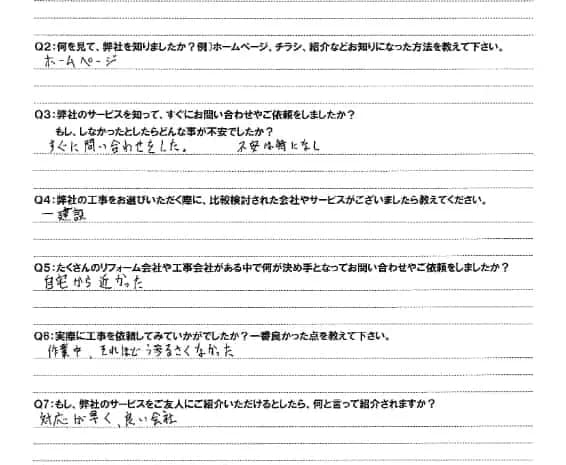 Q2:何を見て、弊社を知りましたか?例)ホームページ、チラシ、紹介などお知りになった方法を教えて下さい。
ホームページ
Q3:弊社のサービスを知って、すぐにお問い合わせやご依頼をしましたか?
もし、しなかったとしたらどんな事が不安でしたか?
すぐに問い合わせをした。 不安は特になし
Q4:弊社の工事をお選びいただく際に、比較検討された会社やサービスがございましたら教えてください。
一建設
Q5:たくさんのリフォーム会社や工事会社がある中で何が決め手となってお問い合わせやご依頼をしましたか?
自宅から近かった
Q6:実際に工事を依頼してみていかがでしたか?一番良かった点を教えて下さい。
作業中、それほどうるさくなかった
Q7:もし、弊社のサービスをご友人にご紹介いただけるとしたら、何と言って紹介されますか?
対応が早く、良い会社